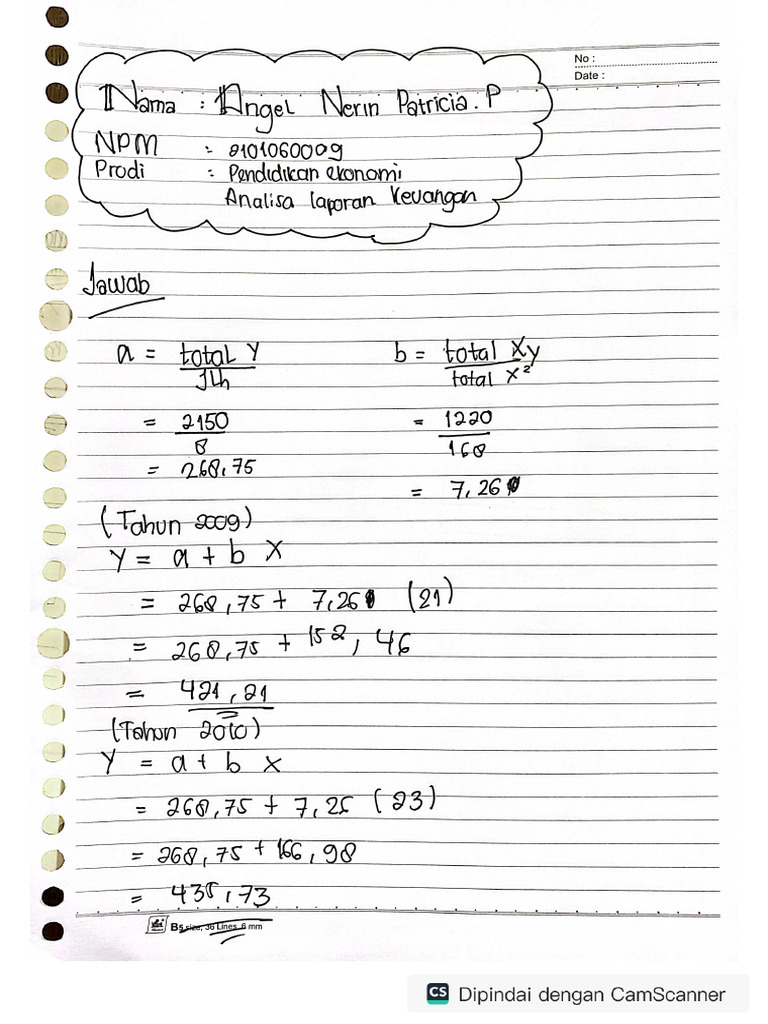 No :
Date :
Nama : Angel Nerin Patricia. P
NPM : 2101060009
Prodi : Pendidikan ekonomi
Analisa laporan Keuangan
Jawab
a = total Y / Jlh b = total Xy / total X²
= 2150 / 8 = 1220 / 168
= 268,75
= 7,26
(Tahun 2009)
Y = a + b X
= 268,75 + 7,26 (21)
= 268,75 + 152,46
= 421,21
(Tahun 2010)
Y = a + b X
= 268,75 + 7,26 (23)
= 268,75 + 166,98
= 435,73
B5 size, 36 Lines, 6 mm
CS Dipindai dengan CamScanner